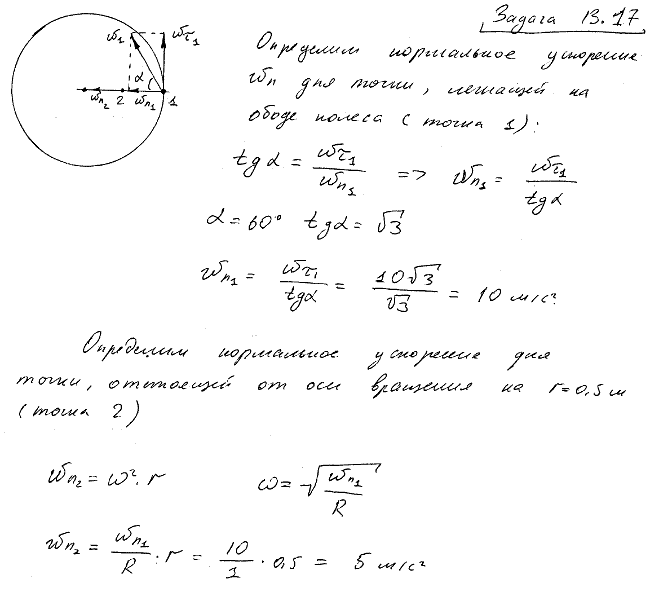 Задача 13.17
w₁ wτ₁
α
wn₂ 2 wn₁ 1
Определим нормальное ускорение
wn для точки, лежащей на
ободе колеса (точка 1):
tg α = wτ₁/wn₁ => wn₁ = wτ₁/tgα
α = 60° tgα = √3
wn₁ = wτ₁/tgα = 10√3/√3 = 10 м/с²
Определим нормальное ускорение для
точки, отстоящей от оси вращения на r=0,5 м
(точка 2)
wn₂ = ω²·r ω = √(wn₁/R)
wn₂ = wn₁/R · r = 10/1 · 0,5 = 5 м/с²